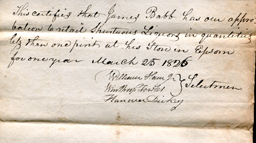 This certifies that James Babb has our appro-
bation to retail Spirituous Liquors in quantities
less than one pint at his Store in Epsom
for one year March 25 1826
William Ham Jr
Winthrop Fowler
Selectmen
Hanover Dickey